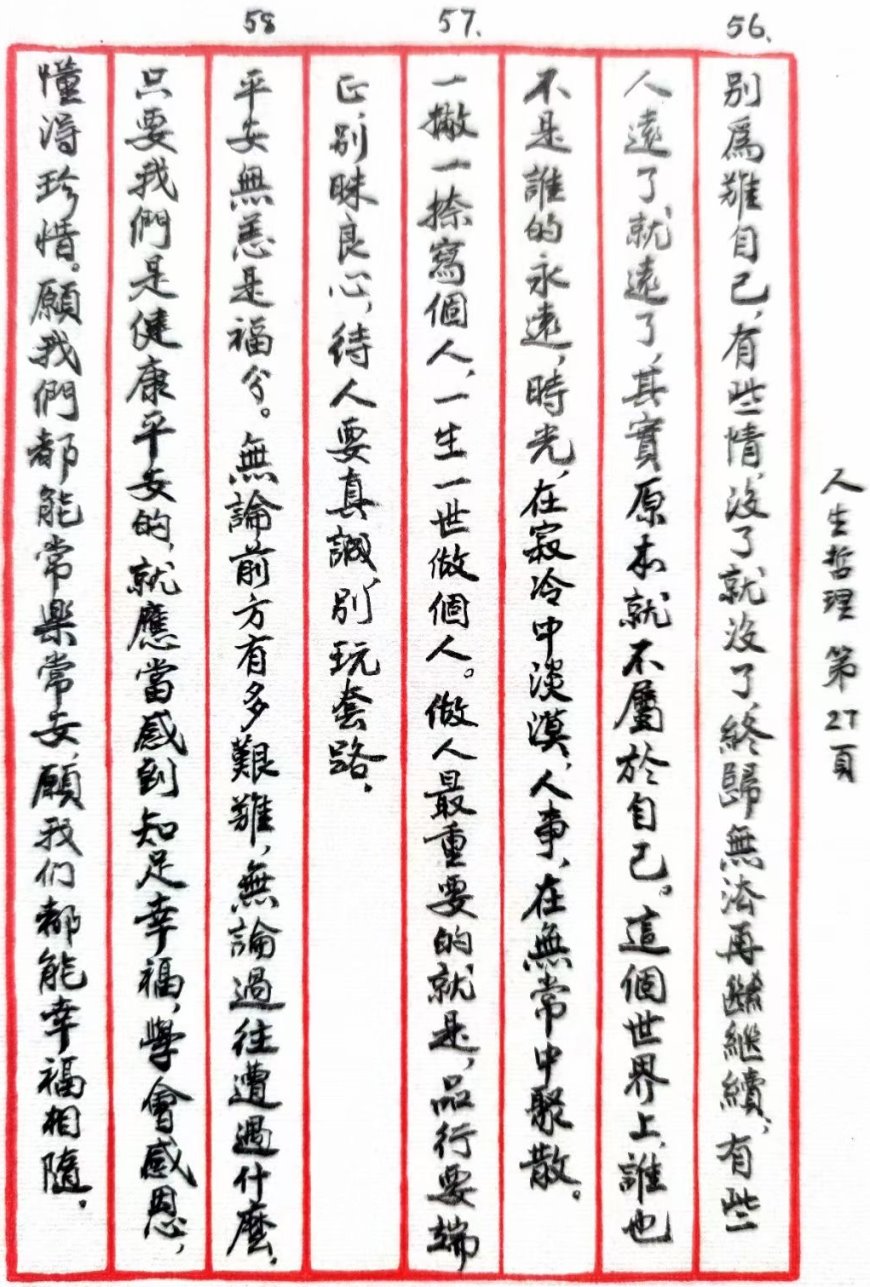 人生哲理 第27頁
56.
別爲難自己，有些情，沒了就沒了，終歸無法再繼續，有些
人遠了就遠了，其實原本就不屬於自己。這個世界上，誰也
不是誰的永遠，時光，在寂冷中淡漠，人事，在無常中聚散。
57.
一撇一捺寫個人，一生一世做個人。做人最重要的就是，品行要端
正，別昧良心，待人要真誠，別玩套路。
58
平安無恙是福分。無論前方有多艱難，無論過往遭遇什麼，
只要我們是健康平安的，就應當感到知足幸福，學會感恩，
懂得珍惜。願我們都能常樂常安，願我们都能幸福相隨。